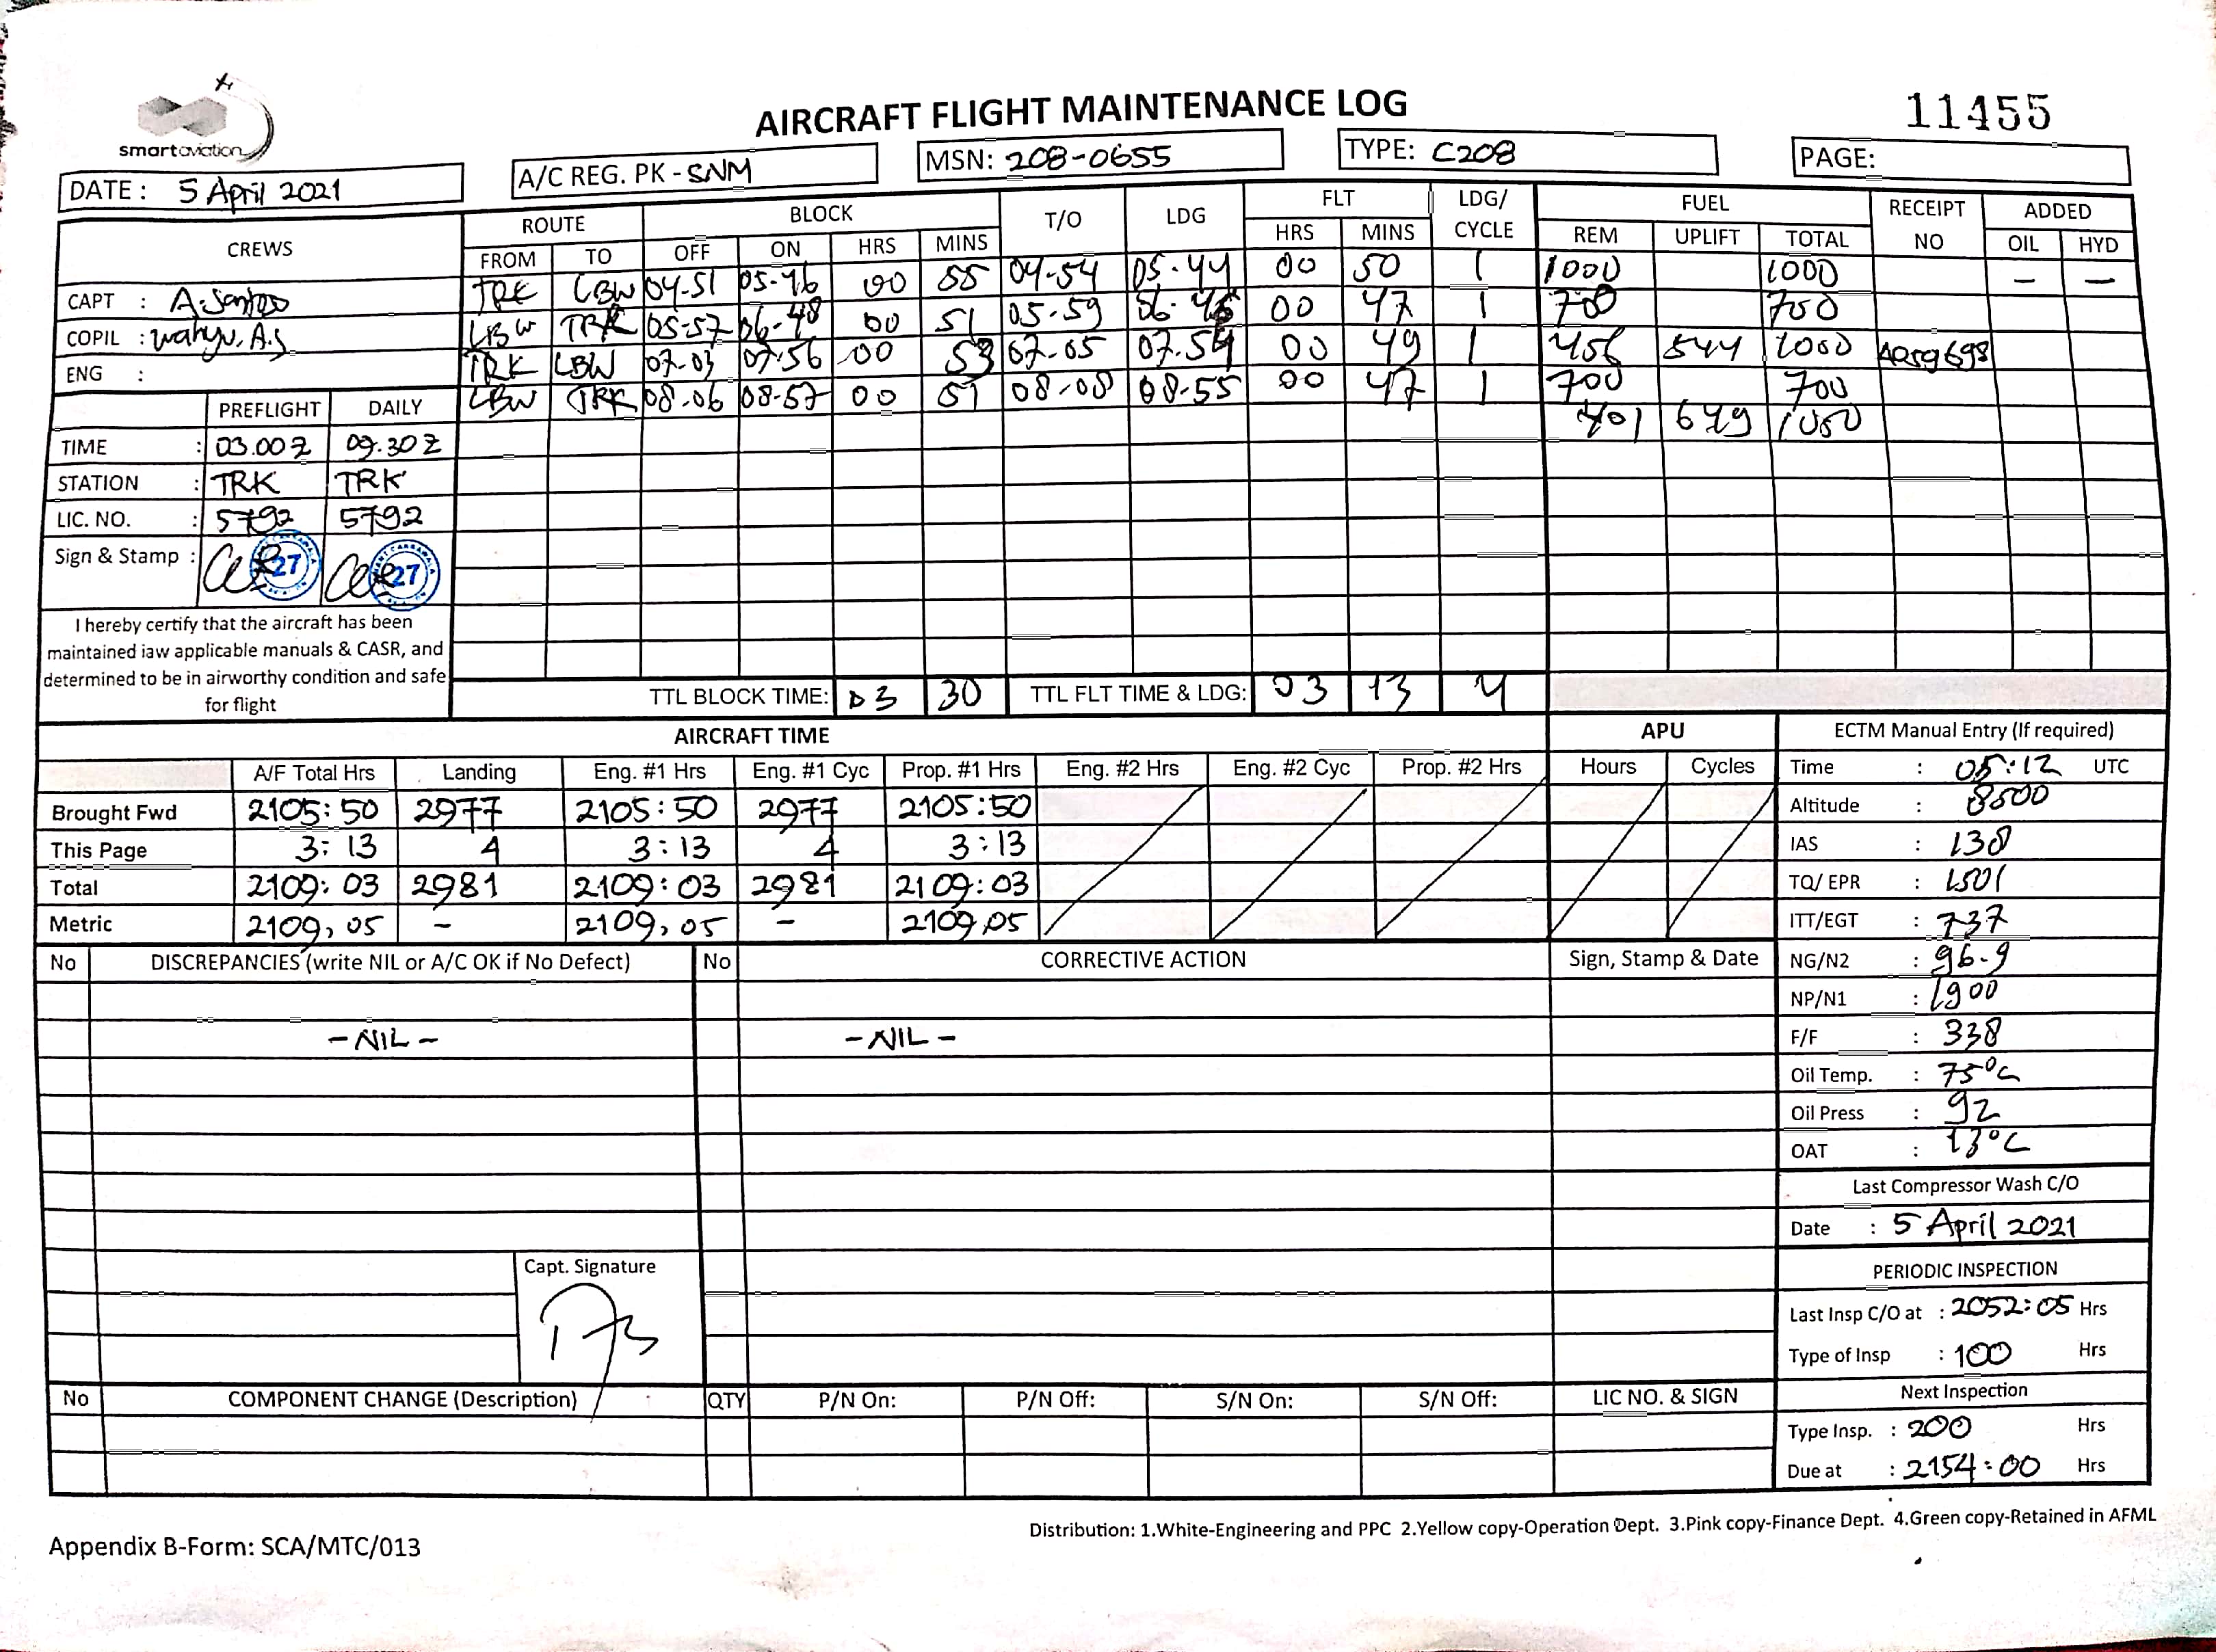 smartaviation
AIRCRAFT FLIGHT MAINTENANCE LOG
11455
DATE : 5 April 2021
A/C REG. PK - SNM
MSN: 208-0655
TYPE: C208
PAGE:
CREWS ROUTE BLOCK T/O LDG FLT LDG/ CYCLE FUEL RECEIPT NO ADDED
FROM TO OFF ON HRS MINS HRS MINS REM UPLIFT TOTAL OIL HYD
CAPT : A. Santoso
COPIL : Wahyu. A.S
ENG :
TRK LBW 04-51 05-46 00 55 04-54 05-44 00 50 1 1000 1000 - -
LBW TRK 05-57 06-48 00 51 05-59 06-46 00 47 1 700 700
TRK LBW 07-03 07-56 00 53 07-05 07.54 00 49 1 456 544 1000
LBW TRK 08-06 08-57 00 51 08-08 08-55 00 47 1 700 700
401 649 1050
PREFLIGHT DAILY
TIME : 03.00 Z 09.30 Z
STATION : TRK TRK
LIC. NO. : 5792 5792
Sign & Stamp : 27 27
I hereby certify that the aircraft has been
maintained iaw applicable manuals & CASR, and
determined to be in airworthy condition and safe
for flight
TTL BLOCK TIME: 03 30 TTL FLT TIME & LDG: 03 13 4
AIRCRAFT TIME APU
A/F Total Hrs Landing Eng. #1 Hrs Eng. #1 Cyc Prop. #1 Hrs Eng. #2 Hrs Eng. #2 Cyc Prop. #2 Hrs Hours Cycles
Brought Fwd 2105:50 2977 2105:50 2977 2105:50
This Page 3:13 4 3:13 4 3:13
Total 2109:03 2981 2109:03 2981 2109:03
Metric 2109,05 - 2109,05 - 2109,05
ECTM Manual Entry (If required)
Time : 05:12 UTC
Altitude : 8500
IAS : 138
TQ/ EPR : 1501
ITT/EGT : 737
NG/N2 : 96.9
NP/N1 : 1900
F/F : 338
Oil Temp. : 75°C
Oil Press : 92
OAT : 13°C
Last Compressor Wash C/O
Date : 5 April 2021
PERIODIC INSPECTION
Last Insp C/O at : 2052:05 Hrs
Type of Insp : 100 Hrs
Next Inspection
Type Insp. : 200 Hrs
Due at : 2154:00 Hrs
No DISCREPANCIES (write NIL or A/C OK if No Defect) No CORRECTIVE ACTION Sign, Stamp & Date
- NIL - - NIL -
Capt. Signature
No COMPONENT CHANGE (Description) QTY P/N On: P/N Off: S/N On: S/N Off: LIC NO. & SIGN
Appendix B-Form: SCA/MTC/013
Distribution: 1.White-Engineering and PPC 2.Yellow copy-Operation Dept. 3.Pink copy-Finance Dept. 4.Green copy-Retained in AFML